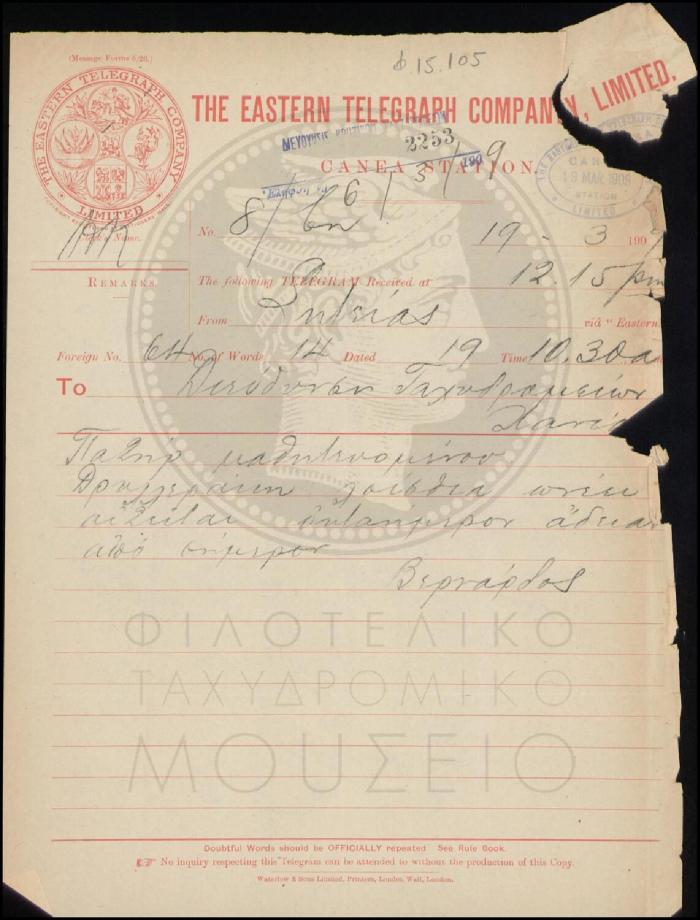 φ.15.105
(Message Forms 6/20.)
THE EASTERN TELEGRAPH COMPANY, LIMITED.
THE EASTERN TELEGRAPH COMPANY
LIMITED
2253
CANEA STATION.
6/3/9
CAN
19 MAR 1909
STATION
LIMITED
Clerk's Name.
No. 8/ 19-3 190
REMARKS.
The following TELEGRAM Received at 12.15 pm
From Σητείας viâ "Eastern
Foreign No. 64 No. of Words 14 Dated 19 Time 10.30 a
To Διεύθυνσιν Ταχυδρομείων
Χανία
Πατήρ μαθητευομένου
πνέει
αιτείται πενταήμερον άδειαν
από σήμερον
Βερνάρδος
ΦΙΛΟΤΕΛΙΚΟ
ΤΑΧΥΔΡΟΜΙΚΟ
ΜΟΥΣΕΙΟ
Doubtful Words should be OFFICIALLY repeated See Rule Book.
No inquiry respecting this Telegram can be attended to without the production of this Copy.
Waterlow & Sons Limited, Printers, London Wall, London.